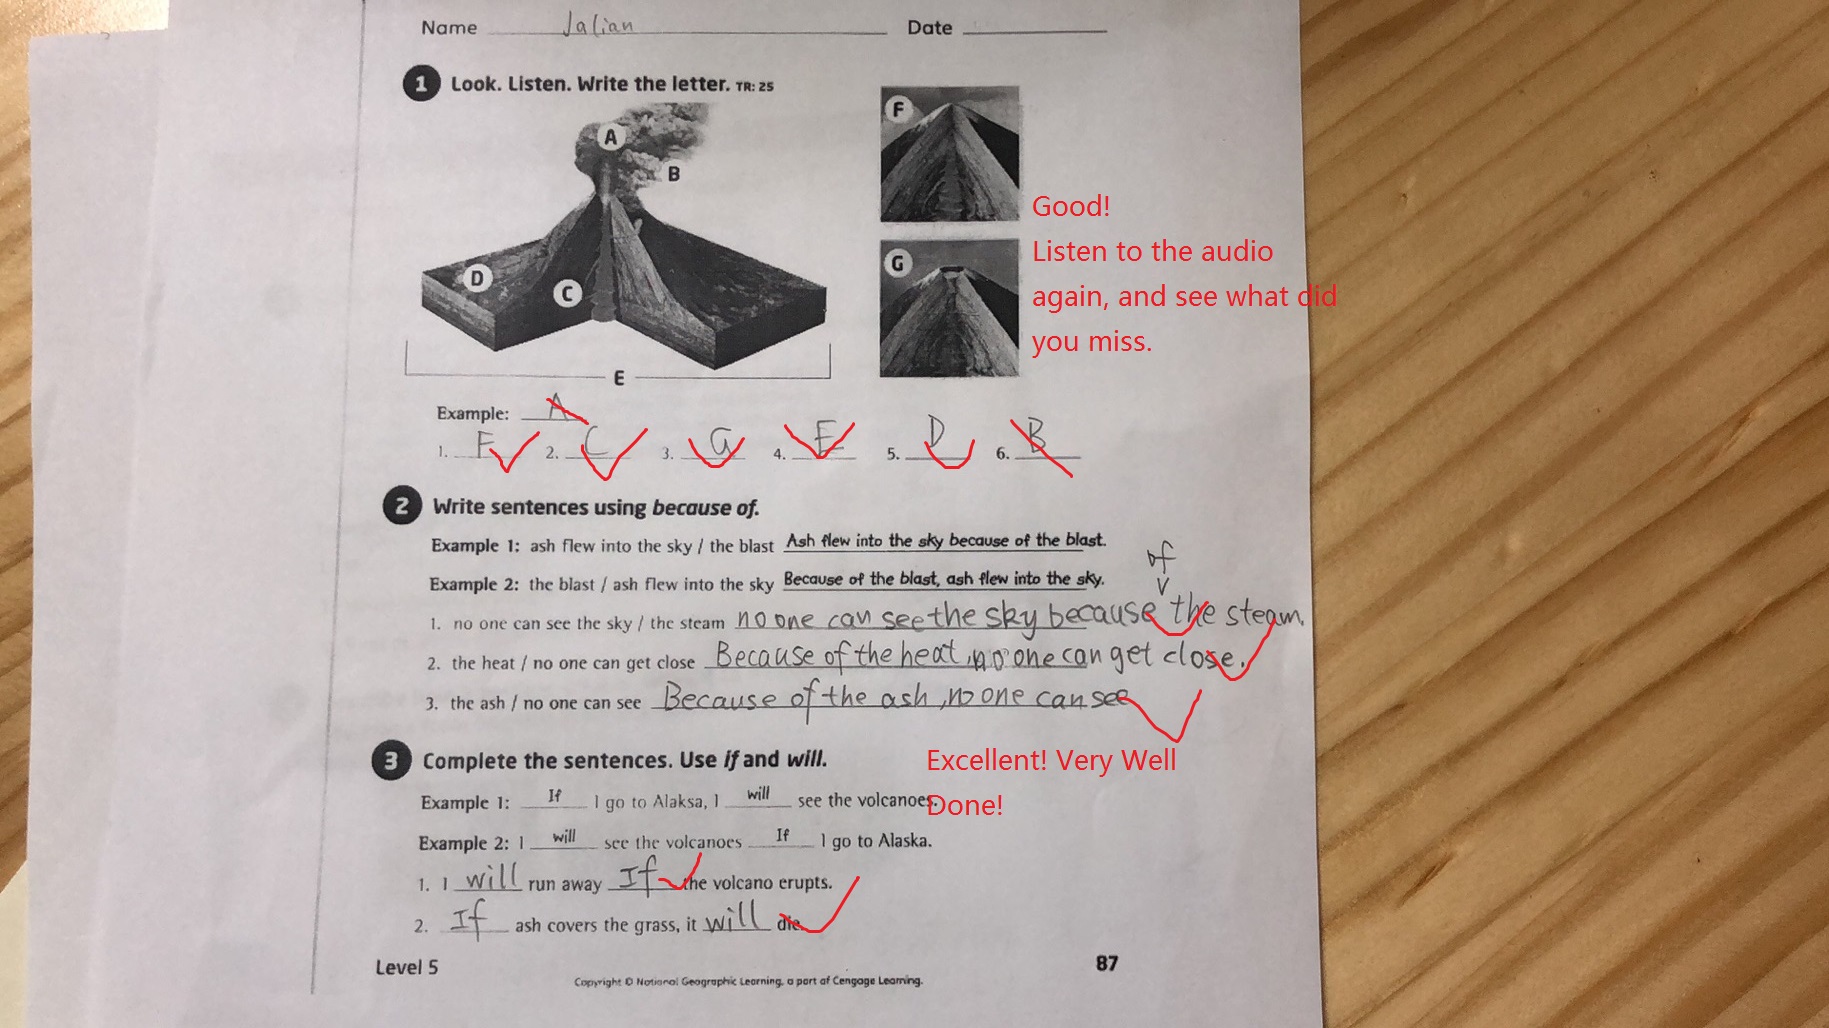 Name Jalian Date
1 Look. Listen. Write the letter. TR: 25
A
B
C
D
E
F
G
Good!
Listen to the audio
again, and see what did
you miss.
Example: A
1. F 2. C 3. G 4. E 5. D 6. B
2 Write sentences using because of.
Example 1: ash flew into the sky / the blast Ash flew into the sky because of the blast.
Example 2: the blast / ash flew into the sky Because of the blast, ash flew into the sky.
of
1. no one can see the sky / the steam no one can see the sky because the steam.
2. the heat / no one can get close Because of the heat, no one can get close.
3. the ash / no one can see Because of the ash, no one can see
3 Complete the sentences. Use if and will.
Excellent! Very Well
Done!
Example 1: If I go to Alaksa, I will see the volcanoes.
Example 2: I will see the volcanoes If I go to Alaska.
1. I will run away If the volcano erupts.
2. If ash covers the grass, it will die.
Level 5
87
Copyright © National Geographic Learning, a part of Cengage Learning.